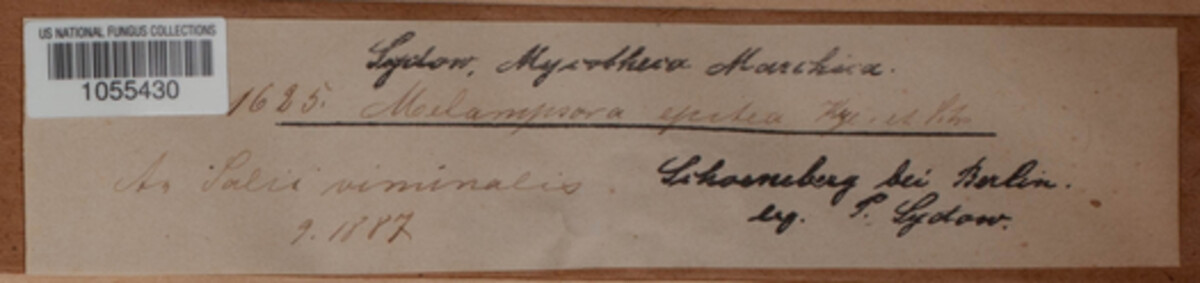 US NATIONAL FUNGUS COLLECTIONS
1055430
Sydow, Mycotheca Marchica.
1625. Melampsora epitea Kze. et Schm.
An Salix viminalis.
Schoeneberg bei Berlin.
9. 1887
leg. P. Sydow.